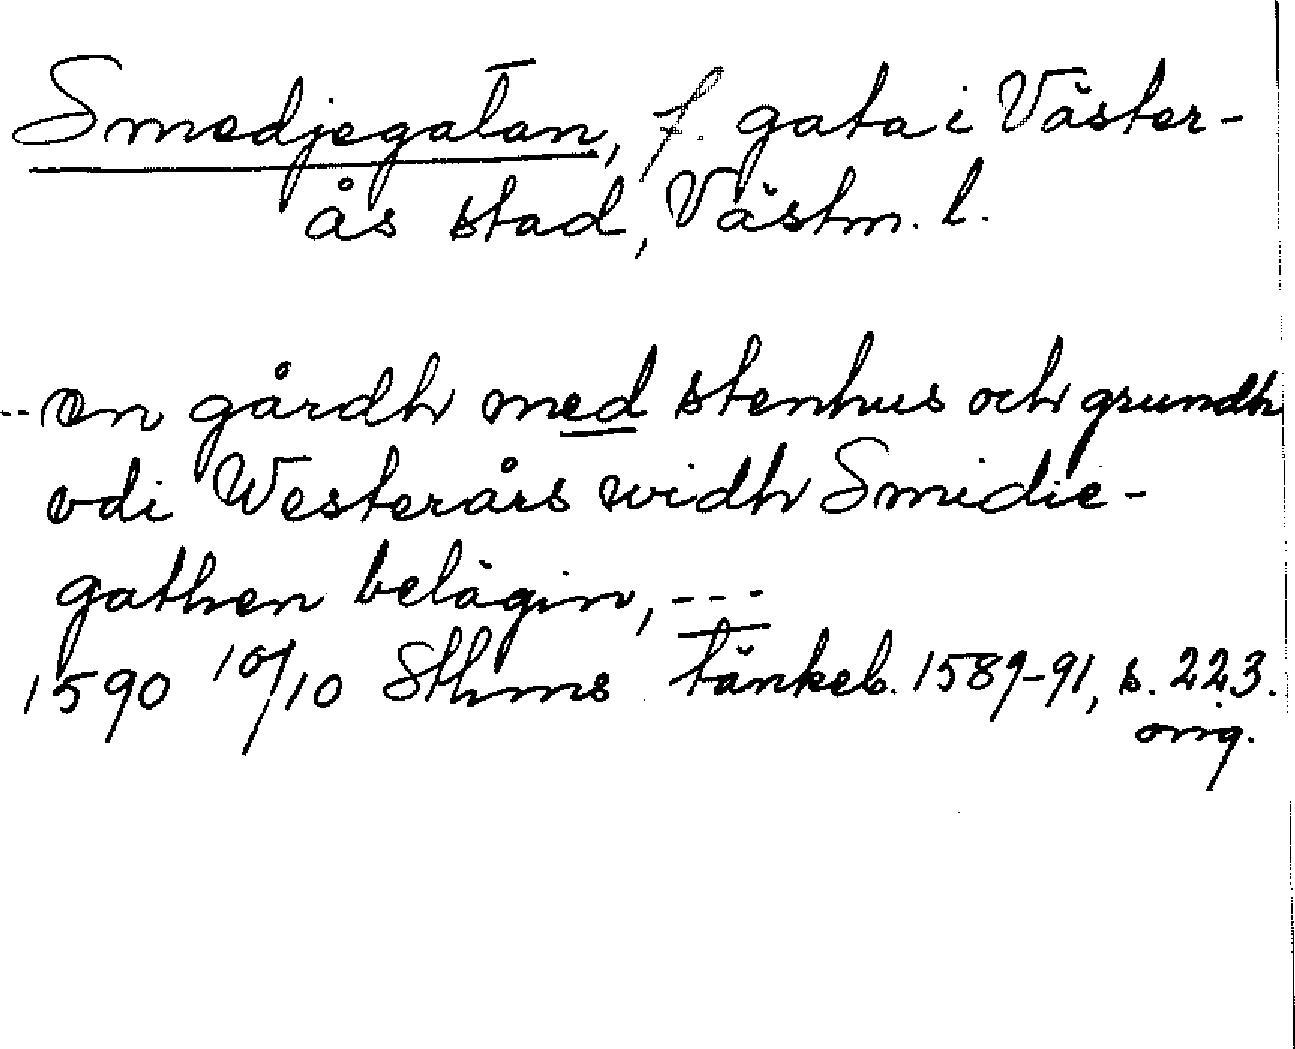 Smedjegatan, f. gata i Väster-
ås stad, Västm. l.
-- en gårdh med stenhus och grundh
vdi Westerårs widh Smidie-
gathen belägin, ---
1590 10/10 Sthms tänkeb. 1589-91, s. 223.
orig.